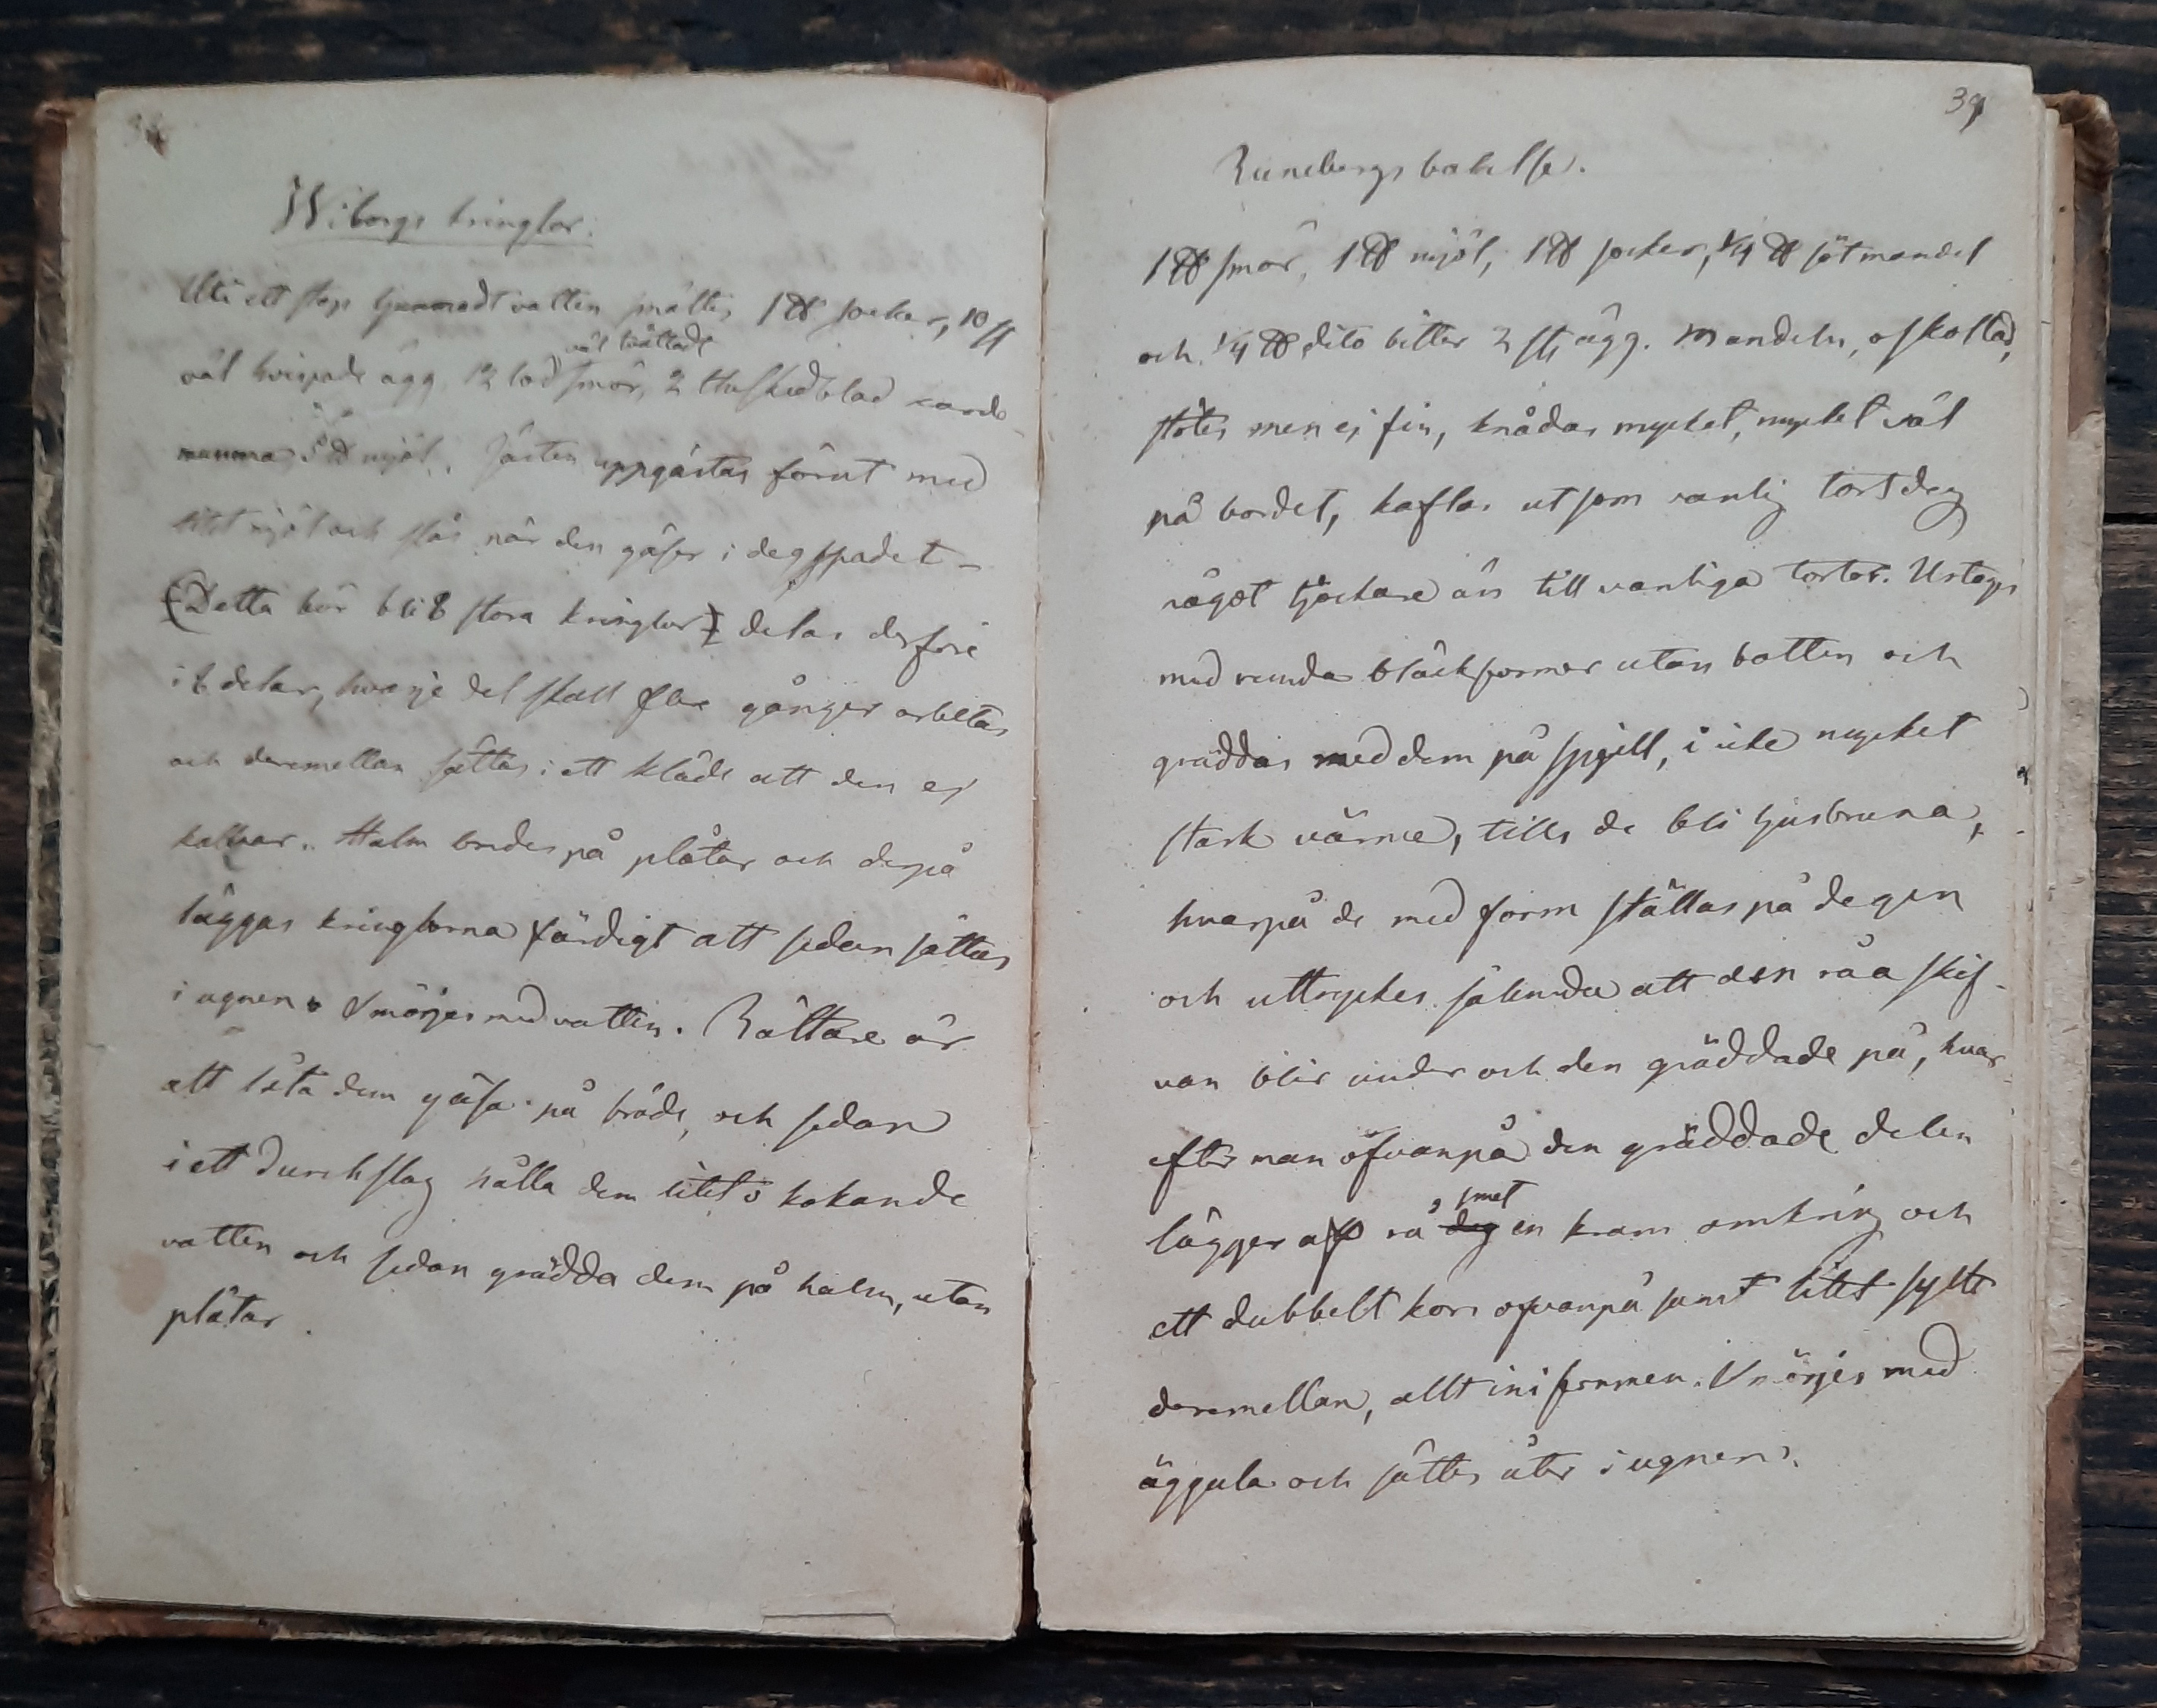 Wiborgs kringlor.
Uti ett stop ljummadt vatten smältes 1 ℔ socker, 10 st
väl tvättadt
väl hvispade ägg, 12 lod smör, 2 theskedblad karde-
mumma, mjöl. Jästen uppgästas förut med
litet mjöl och slås när den gäser i degspadet –
(Detta bör bli 8 stora kringlor) delas derföre
i 8 delar, hvarje del skall flere gånger arbetas
och deremellan sättas i ett kläde att den ej
kallnar. Halm bredes på plåtar och derpå
läggas kringlorna färdigt att sedan sättas
i ugnen. Smörjes med vatten. Rättare är
att låta dem gäsa på bräde, och sedan
i ett durchslag hålla dem litet i kokande
vatten och sedan grädda dem på halm, utan
plåtar.
39
Runebergs bakelse.
1 ℔ smör, 1 ℔ mjöl, 1 ℔ socker, 1/4 ℔ sötmandel
och 1/4 ℔ dito bitter 2 st. ägg. Mandeln, oskollad,
stötes men ej fin, knådas mycket, mycket väl
på bordet, kaflas ut som vanlig tortdeg
något tjockare än till vanliga tortor. Uttages
med runda bläckformor utan botten och
gräddas med dem på spjell, i icke mycket
stark värme, tills de bli ljusbruna,
hvarpå de med form ställas på degen
och uttryckes sålunda att den råa skif-
van blir under och den gräddade på, hvar-
efter man öfvanpå den gräddade delen
smet
lägger af rå deg en kram omkring och
ett dubbelt kors ofvanpå samt litet sylt
deremellan, allt ini formen. Smörjes med
äggula och sättes åter i ugnen.